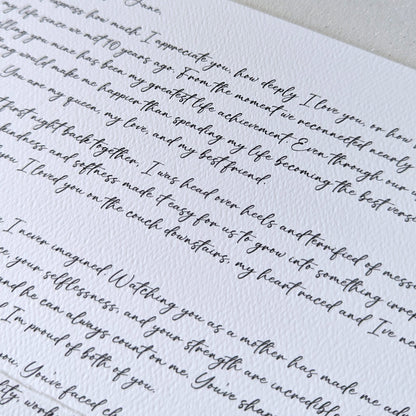 Jana,
express how much I appreciate you, how deeply I love you, or how
my life since we met 10 years ago. From the moment we reconnected nearly
you mine has been my greatest life achievement. Even through our
could make me happier than spending my life becoming the best vers
You are my queen, my love, and my best friend.
first night back together, I was head over heels and terrified of mess
kindness and softness made it easy for us to grow into something irre
you I loved you on the couch downstairs, my heart raced and I've ne
I never imagined. Watching you as a mother has made me ad
your selflessness, and your strength are incredible
and he can always count on me. You've shar
I'm proud of both of you.
you. You've faced ch
work